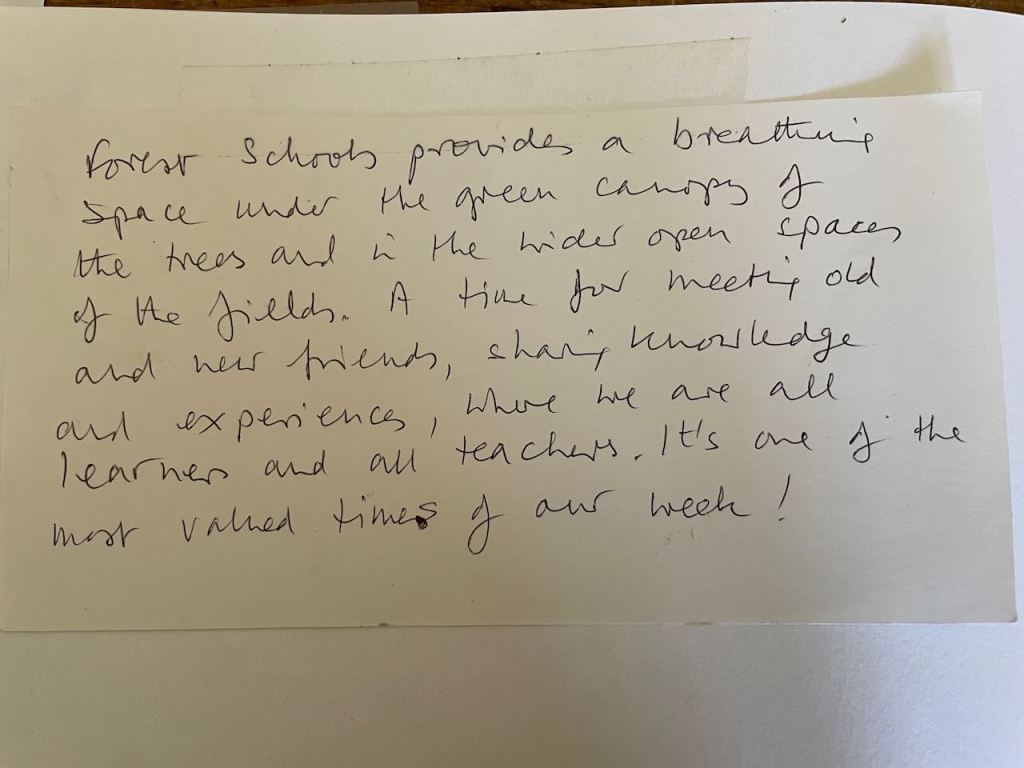 Forest Schools provides a breathing
space under the green canopy of
the trees and in the wider open spaces
of the fields. A time for meeting old
and new friends, sharing knowledge
and experiences, where we are all
learners and all teachers. It's one of the
most valued times of our week!